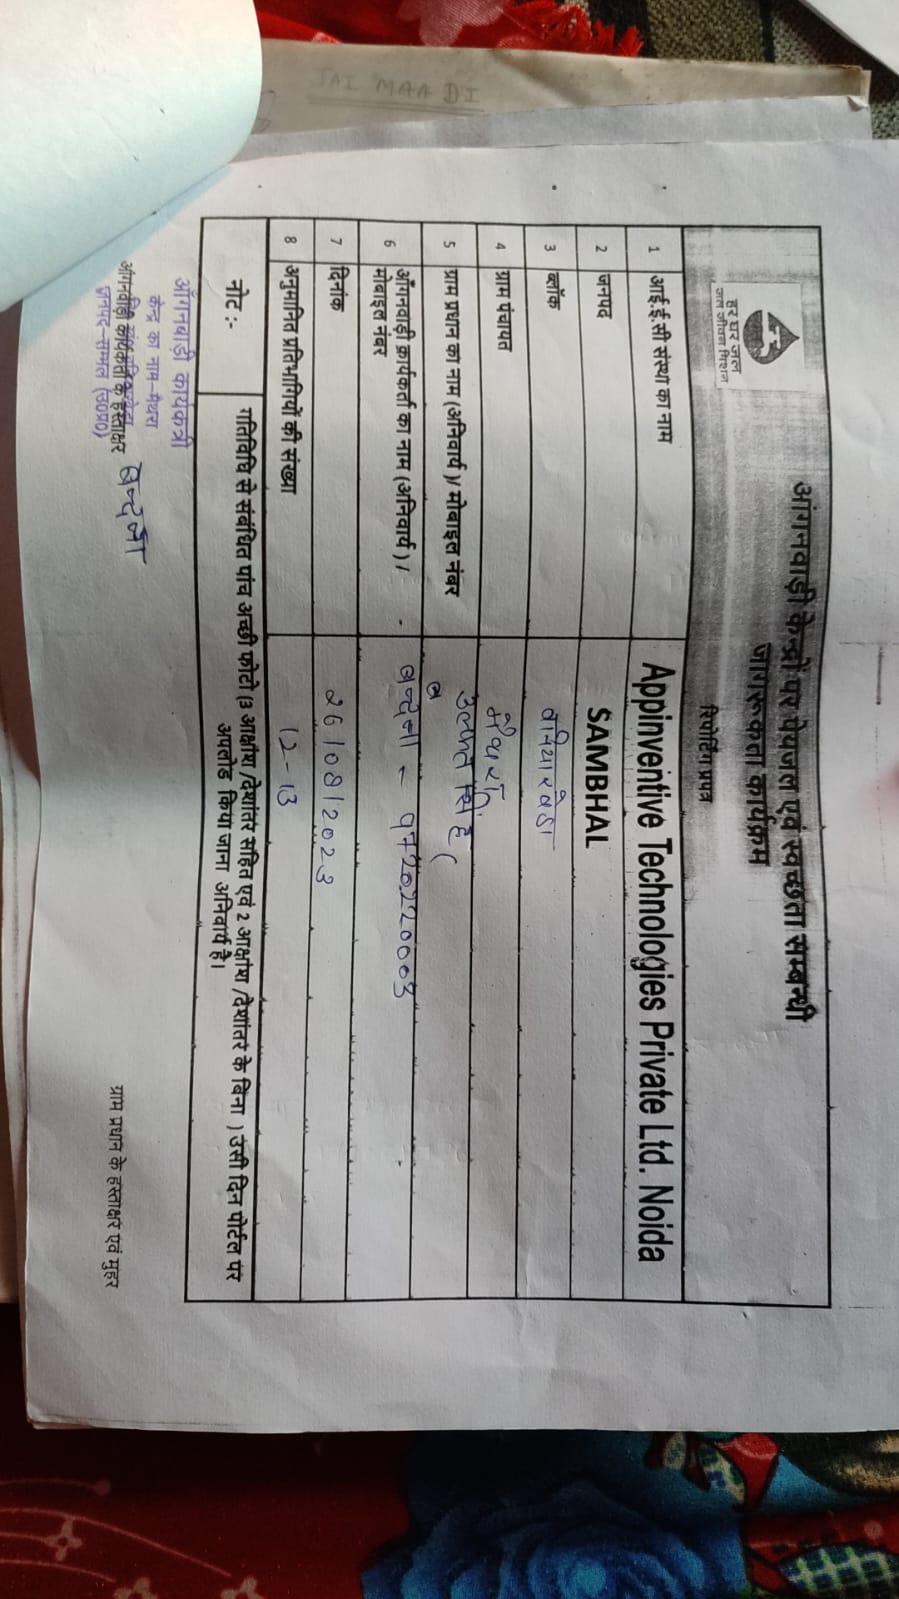 JAI MAA DI
हर घर जल
जल जीवन मिशन
आंगनवाड़ी केन्द्रों पर पेयजल एवं स्वच्छता सम्बन्धी
जागरूकता कार्यक्रम
रिपोर्टिंग प्रपत्र
1 आई.ई.सी संस्था का नाम Appinventive Technologies Private Ltd. Noida
2 जनपद SAMBHAL
3 ब्लॉक बनियाखेडा
4 ग्राम पंचायत
5 ग्राम प्रधान का नाम (अनिवार्य )/ मोबाइल नंबर सिंह (
6 आँगनवाड़ी कार्यकर्ता का नाम (अनिवार्य ) / बन्दना - 9720220003
मोबाईल नंबर
7 दिनांक 26/08/2023
8 अनुमानित प्रतिभागियों की संख्या 12-13
नोट :- गतिविधि से संबंधित पांच अच्छी फोटो (3 आक्षांश /देशांतर सहित एवं 2 आक्षांश /देशांतर के बिना ) उसी दिन पोर्टल पर
अपलोड किया जाना अनिवार्य है।
आँगनवाड़ी कार्यकत्री
केन्द्र का नाम-मैथरा
आंगनवाड़ी कार्यकर्ता के हस्ताक्षर बन्दना
जनपद-सम्भल (उ0प्र0)
ग्राम प्रधान के हस्ताक्षर एवं मुहर